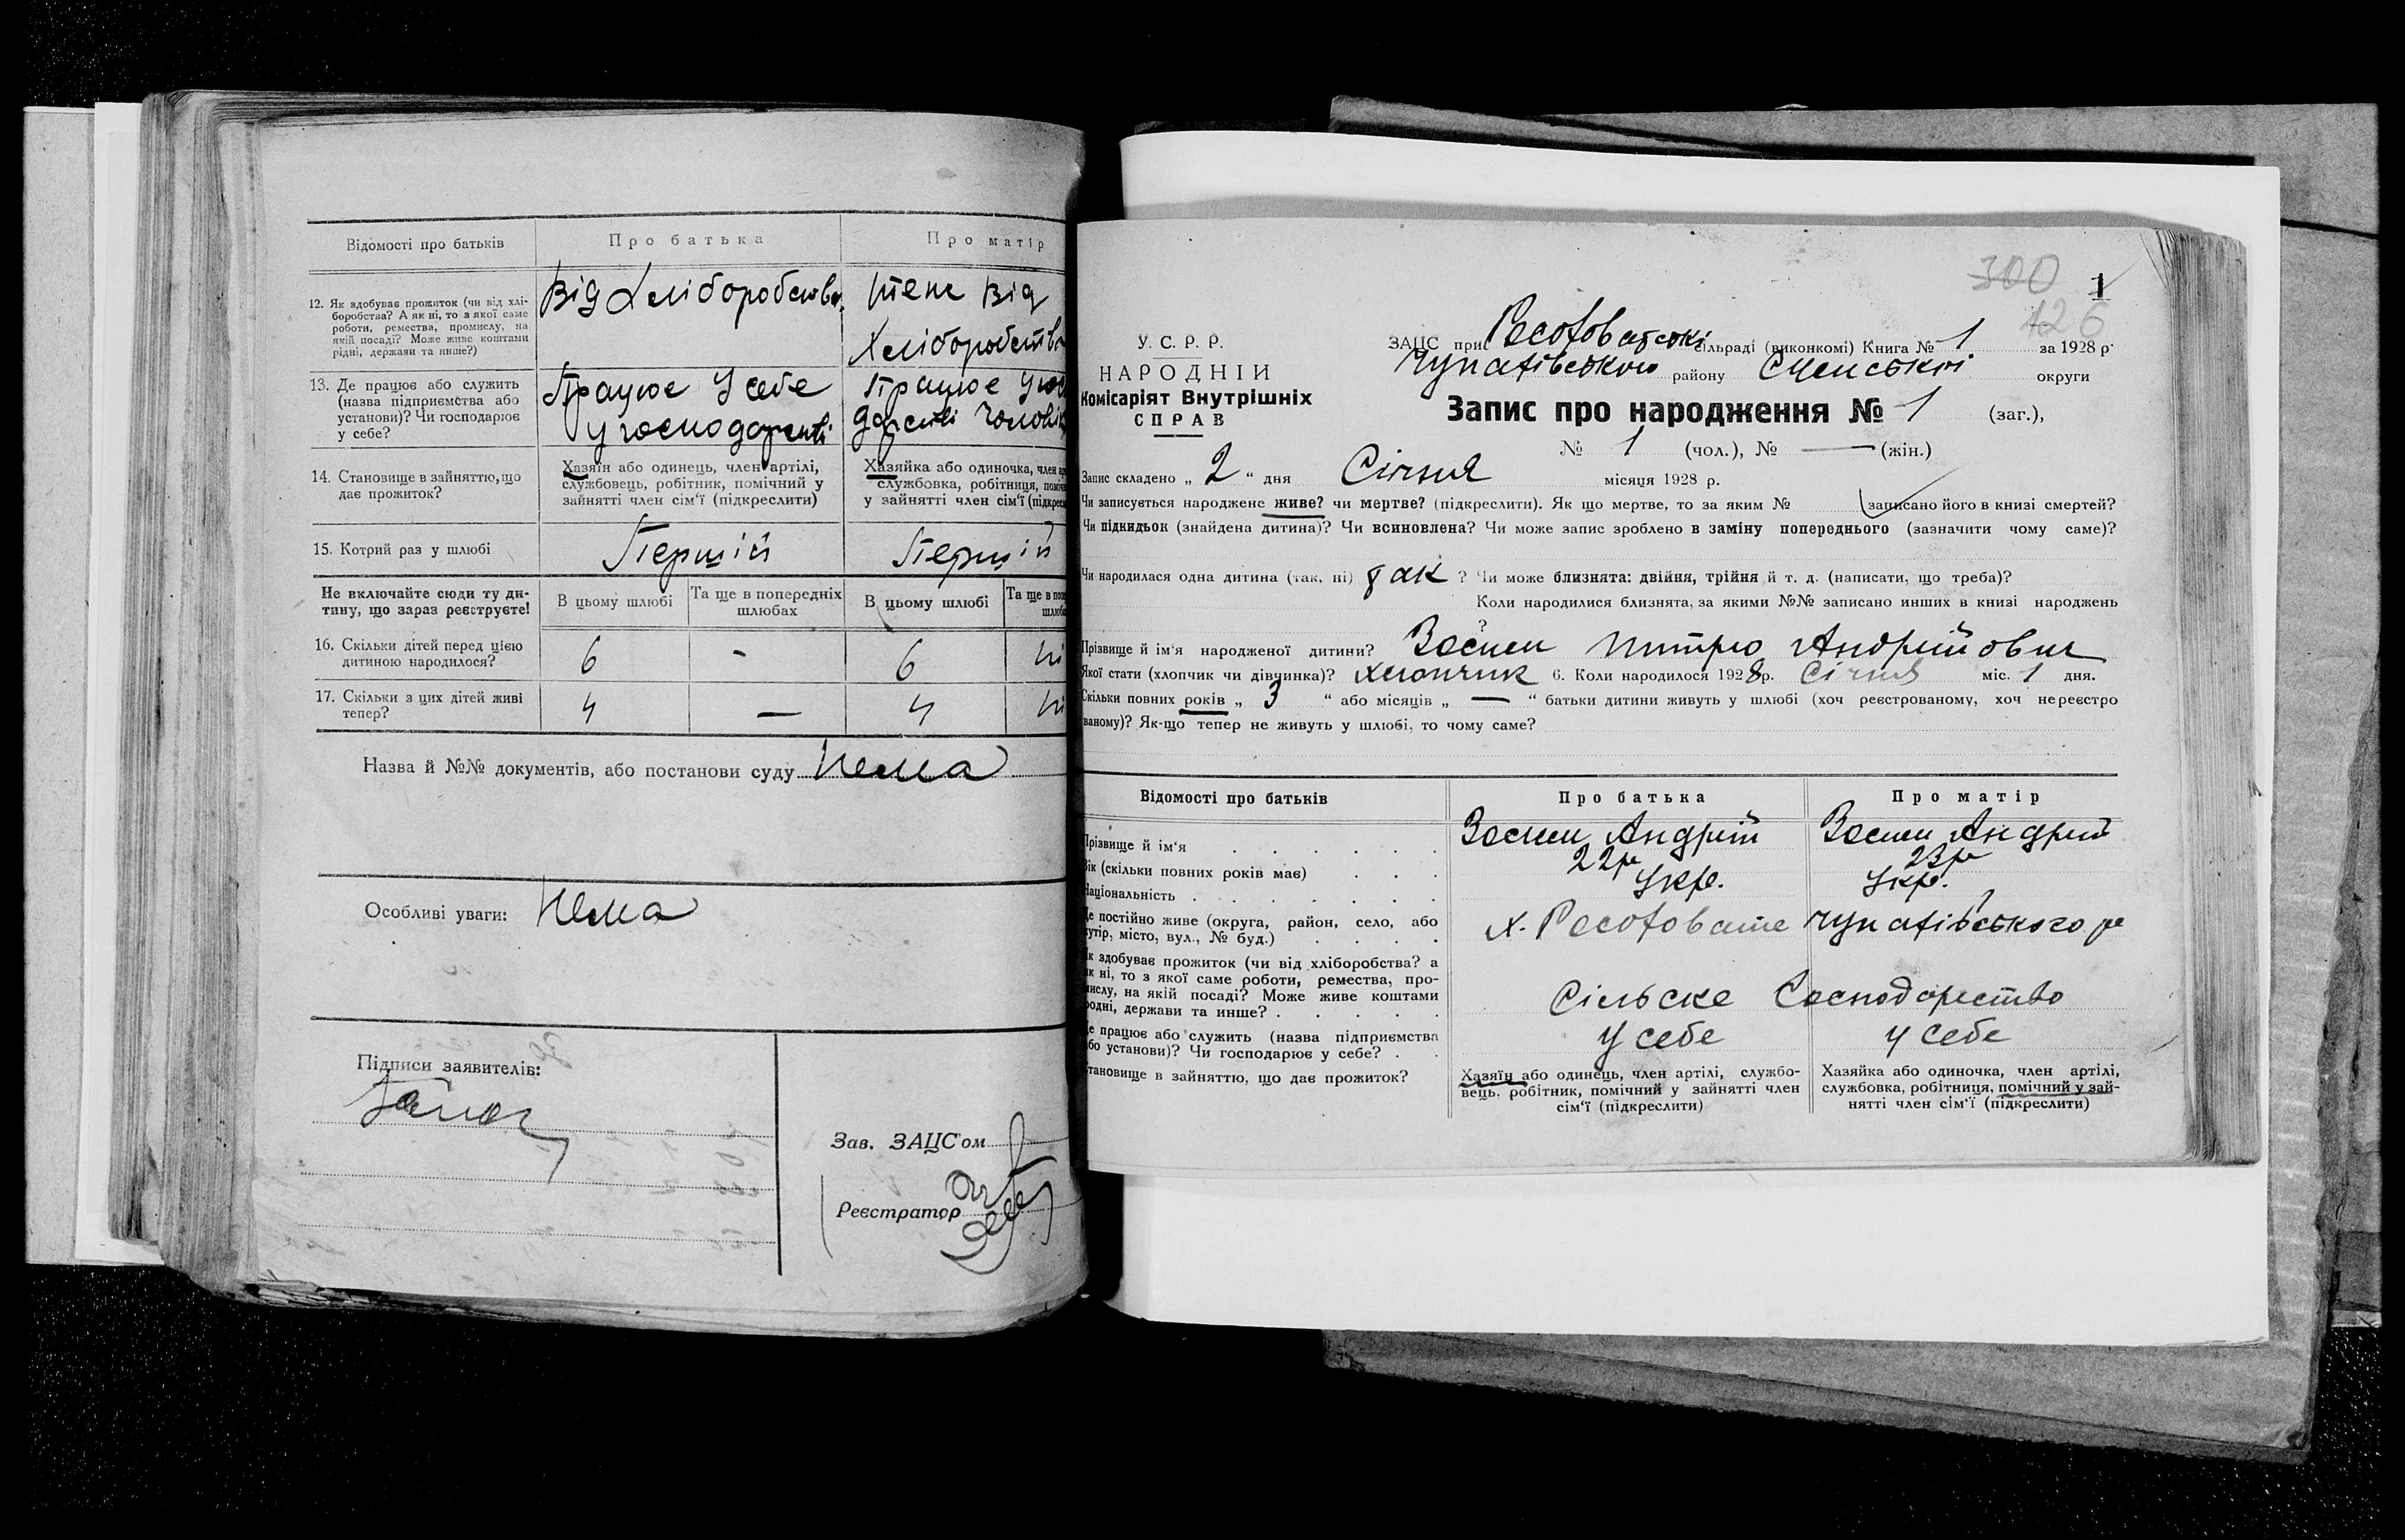 Відомості про батьків
Про батька
Про матір
12. Як здобуває прожиток (чи від хлі-
боробства? А як ні, то з якої саме
роботи, ремества, промислу, на
якій посаді? Може живе коштами
рідні, держави та инше?)
Від Хліборобства
теж від
Хліборобства
13. Де працює або служить
(назва підприємства або
установи)? Чи господарює
у себе?
Працює у себе
у господарстві
Працює у гос
дарстві чоловік
14. Становище в зайняттю, що
дає прожиток?
Хазяїн або одинець, член артілі,
службовець, робітник, помічний у
зайнятті член сім'ї (підкреслити)
Хазяйка або одиночка, член
службовка, робітниця,
у зайнятті член сім'ї
15. Котрий раз у шлюбі
Перший
Перший
Не включайте сюди ту ди-
тину, що зараз реєструєте!
В цьому шлюбі
Та ще в попередніх
шлюбах
В цьому шлюбі
Та ще в
16. Скільки дітей перед цією
дитиною народилося?
6
-
6
ні
17. Скільки з цих дітей живі
тепер?
4
—
4
ні
Назва й №№ документів, або постанови суду Нема
Особливі уваги: Нема
Підписи заявителів:
Зав. ЗАЦС'ом
Реєстратор
300
1
126
У. С. Р. Р.
НАРОДНІЙ
Комісаріят Внутрішніх
СПРАВ
ЗАЦС при сільраді (виконкомі) Книга № 1 за 1928 р.
Чупахівського району Сумської округи
Запис про народження № 1 (заг.),
№ 1 (чол.), № — (жін.)
Запис складено „ 2 “ дня Січня місяця 1928 р.
Чи записується народжене живе? чи мертве? (підкреслити). Як що мертве, то за яким № записано його в книзі смертей?
Чи підкидьок (знайдена дитина)? Чи всиновлена? Чи може запис зроблено в заміну попереднього (зазначити чому саме)?
Чи народилася одна дитина (так, ні) так ? Чи може близнята: двійня, трійня й т. д. (написати, що треба)?
Коли народилися близнята, за якими №№ записано инших в книзі народжень
?
Прізвище й ім'я народженої дитини? Андрійович
Якої стати (хлопчик чи дівчинка)? хлопчик 6. Коли народилося 1928р. Січня міс. 1 дня.
Скільки повних років „ 3 “ або місяців „ — “ батьки дитини живуть у шлюбі (хоч реєстрованому, хоч нереєстро
ваному)? Як-що тепер не живуть у шлюбі, то чому саме?
Відомості про батьків
Про батька
Про матір
Прізвище й ім'я
Андрій
Андрій
Вік (скільки повних років має)
22 р
23 р
Національність
Укр.
Укр.
Де постійно живе (округа, район, село, або
хутір, місто, вул., № буд.)
х. Чупахівського р
Як здобуває прожиток (чи від хліборобства? а
як ні, то з якої саме роботи, ремества, про-
мислу, на якій посаді? Може живе коштами
родні, держави та инше?
Сільске Господарство
Де працює або служить (назва підприємства
або установи)? Чи господарює у себе?
у себе
у себе
Становище в зайняттю, що дає прожиток?
Хазяїн або одинець, член артілі, службо-
вець, робітник, помічний у зайнятті член
сім'ї (підкреслити)
Хазяйка або одиночка, член артілі,
службовка, робітниця, помічний у зай-
нятті член сім'ї (підкреслити)